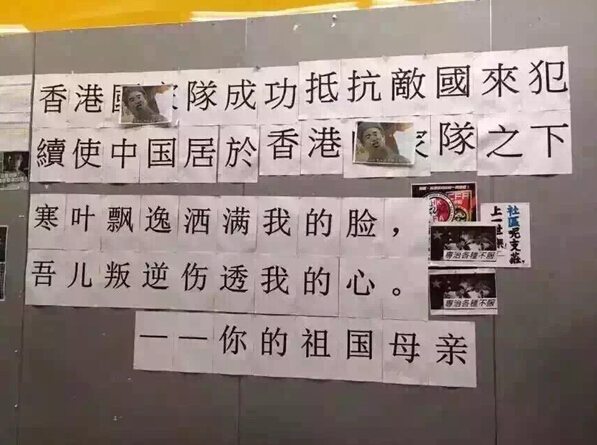 香港國家隊成功抵抗敵國來犯
續使中国居於香港 家隊之下
寒叶飘逸洒满我的脸，
吾儿叛逆伤透我的心。
——你的祖国母亲
社區呃支莊，
專治各種不服
專治各種不服